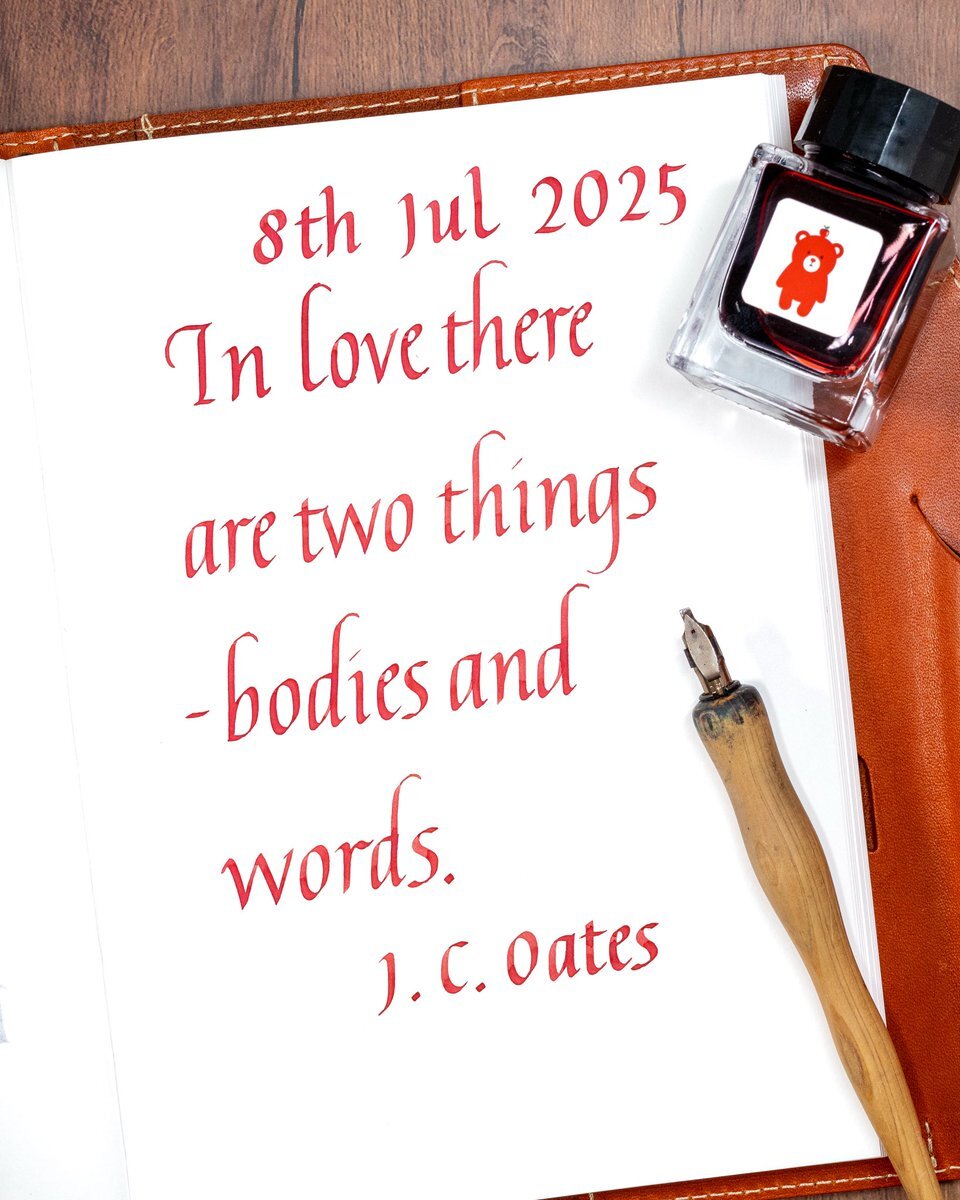 8th Jul 2025
In love there
are two things
- bodies and
words.
J. C. Oates